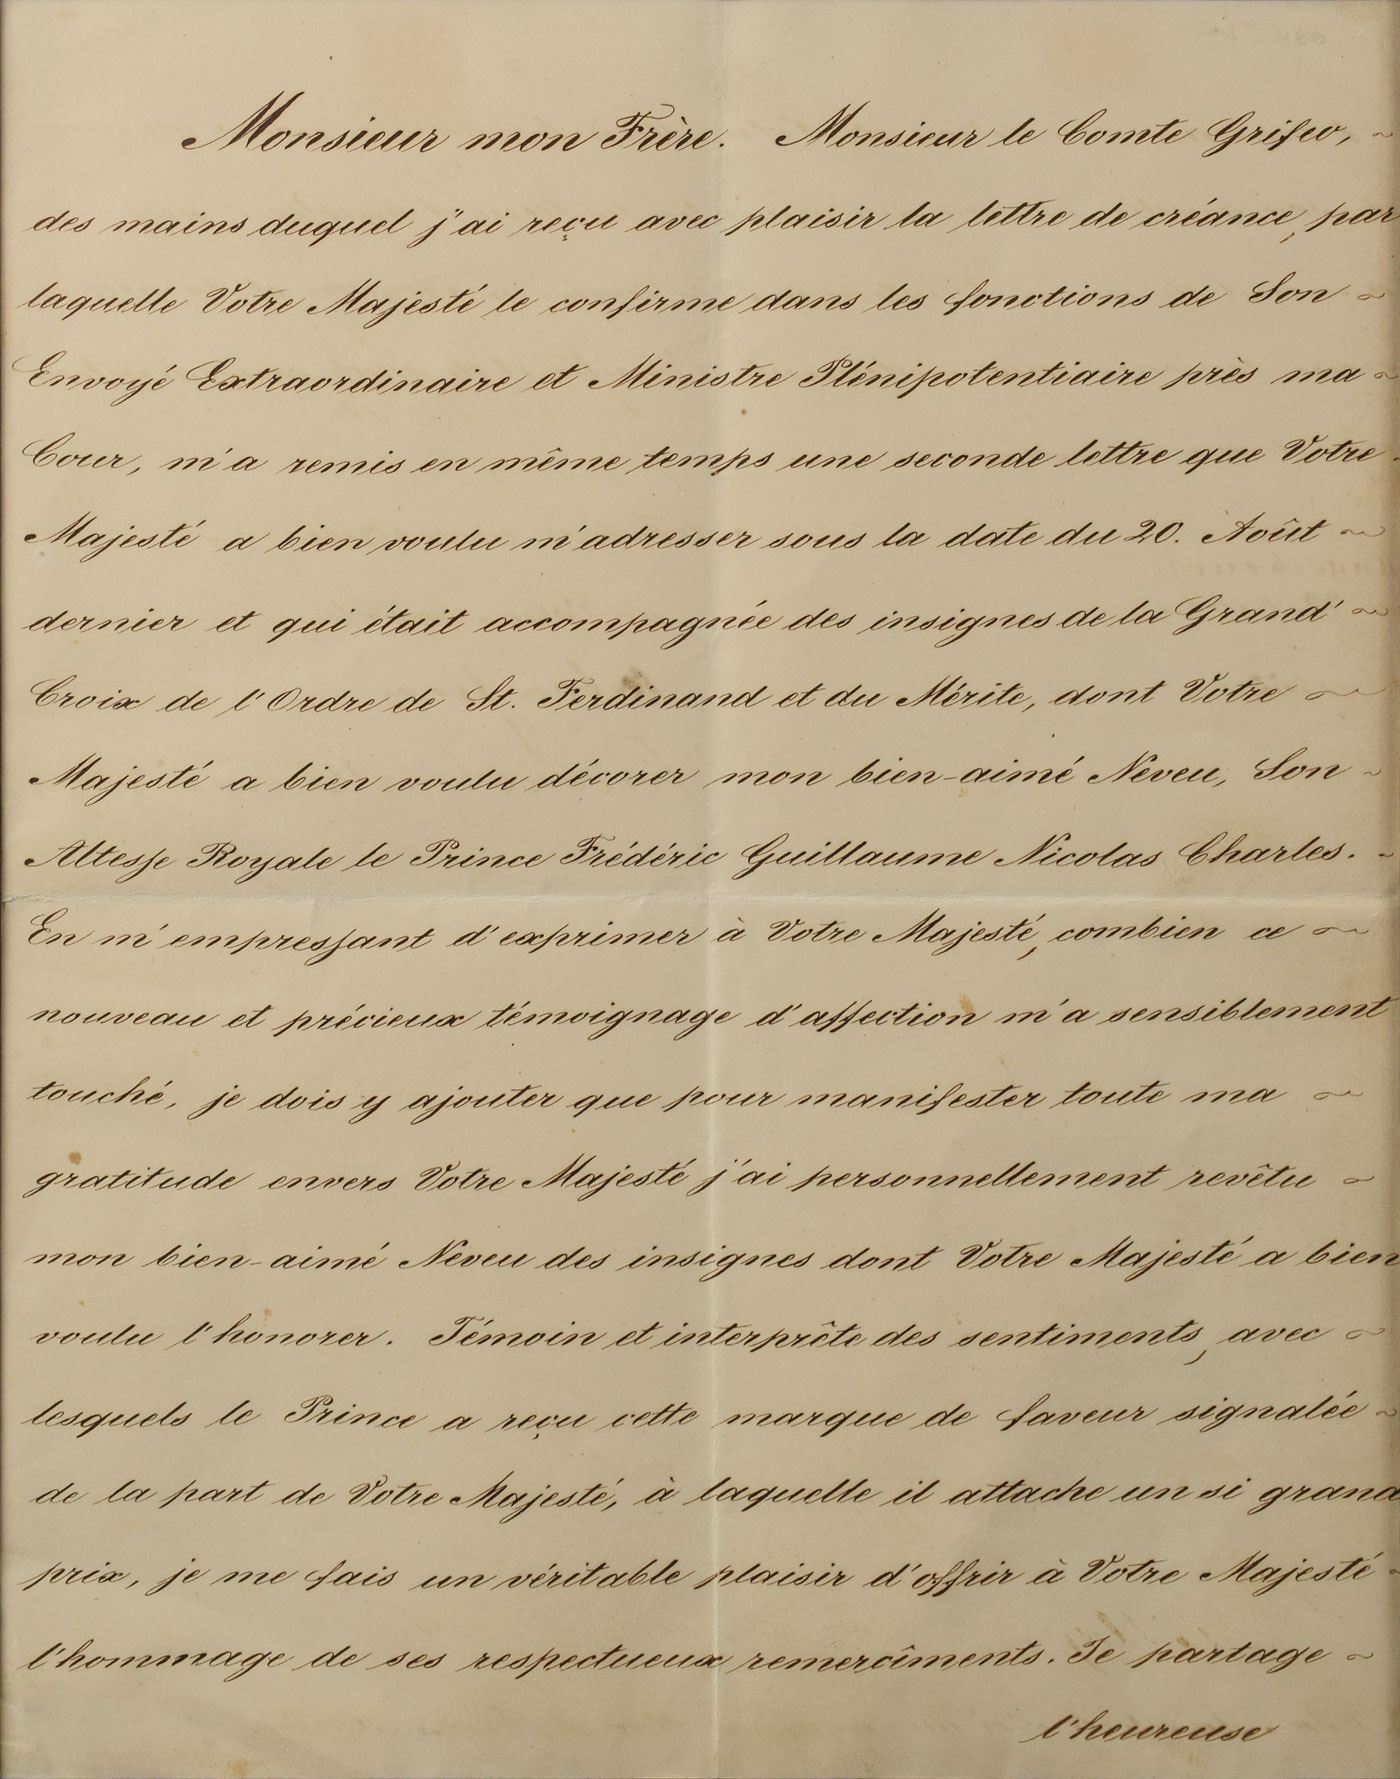 Monsieur mon Frère. Monsieur le Comte Grifeo,
des mains duquel j'ai reçu avec plaisir la lettre de créance, par
laquelle Votre Majesté le confirme dans les fonctions de Son
Envoyé Extraordinaire et Ministre Plénipotentiaire près ma
Cour, m'a remis en même temps une seconde lettre que Votre
Majesté a bien voulu m'adresser sous la date du 20. Août
dernier et qui était accompagnée des insignes de la Grand'
Croix de l'Ordre de St. Ferdinand et du Mérite, dont Votre
Majesté a bien voulu décorer mon bien-aimé Neveu, Son
Altesse Royale le Prince Frédéric Guillaume Nicolas Charles.
En m'empressant d'exprimer à Votre Majesté, combien ce
nouveau et précieux témoignage d'affection m'a sensiblement
touché, je dois y ajouter que pour manifester toute ma
gratitude envers Votre Majesté j'ai personnellement revêtu
mon bien-aimé Neveu des insignes dont Votre Majesté a bien
voulu l'honorer. Témoin et interprête des sentiments, avec
lesquels le Prince a reçu cette marque de faveur signalée
de la part de Votre Majesté, à laquelle il attache un si grand
prix, je me fais un véritable plaisir d'offrir à Votre Majesté
l'hommage de ses respectueux remercîments. Je partage
l'heureuse